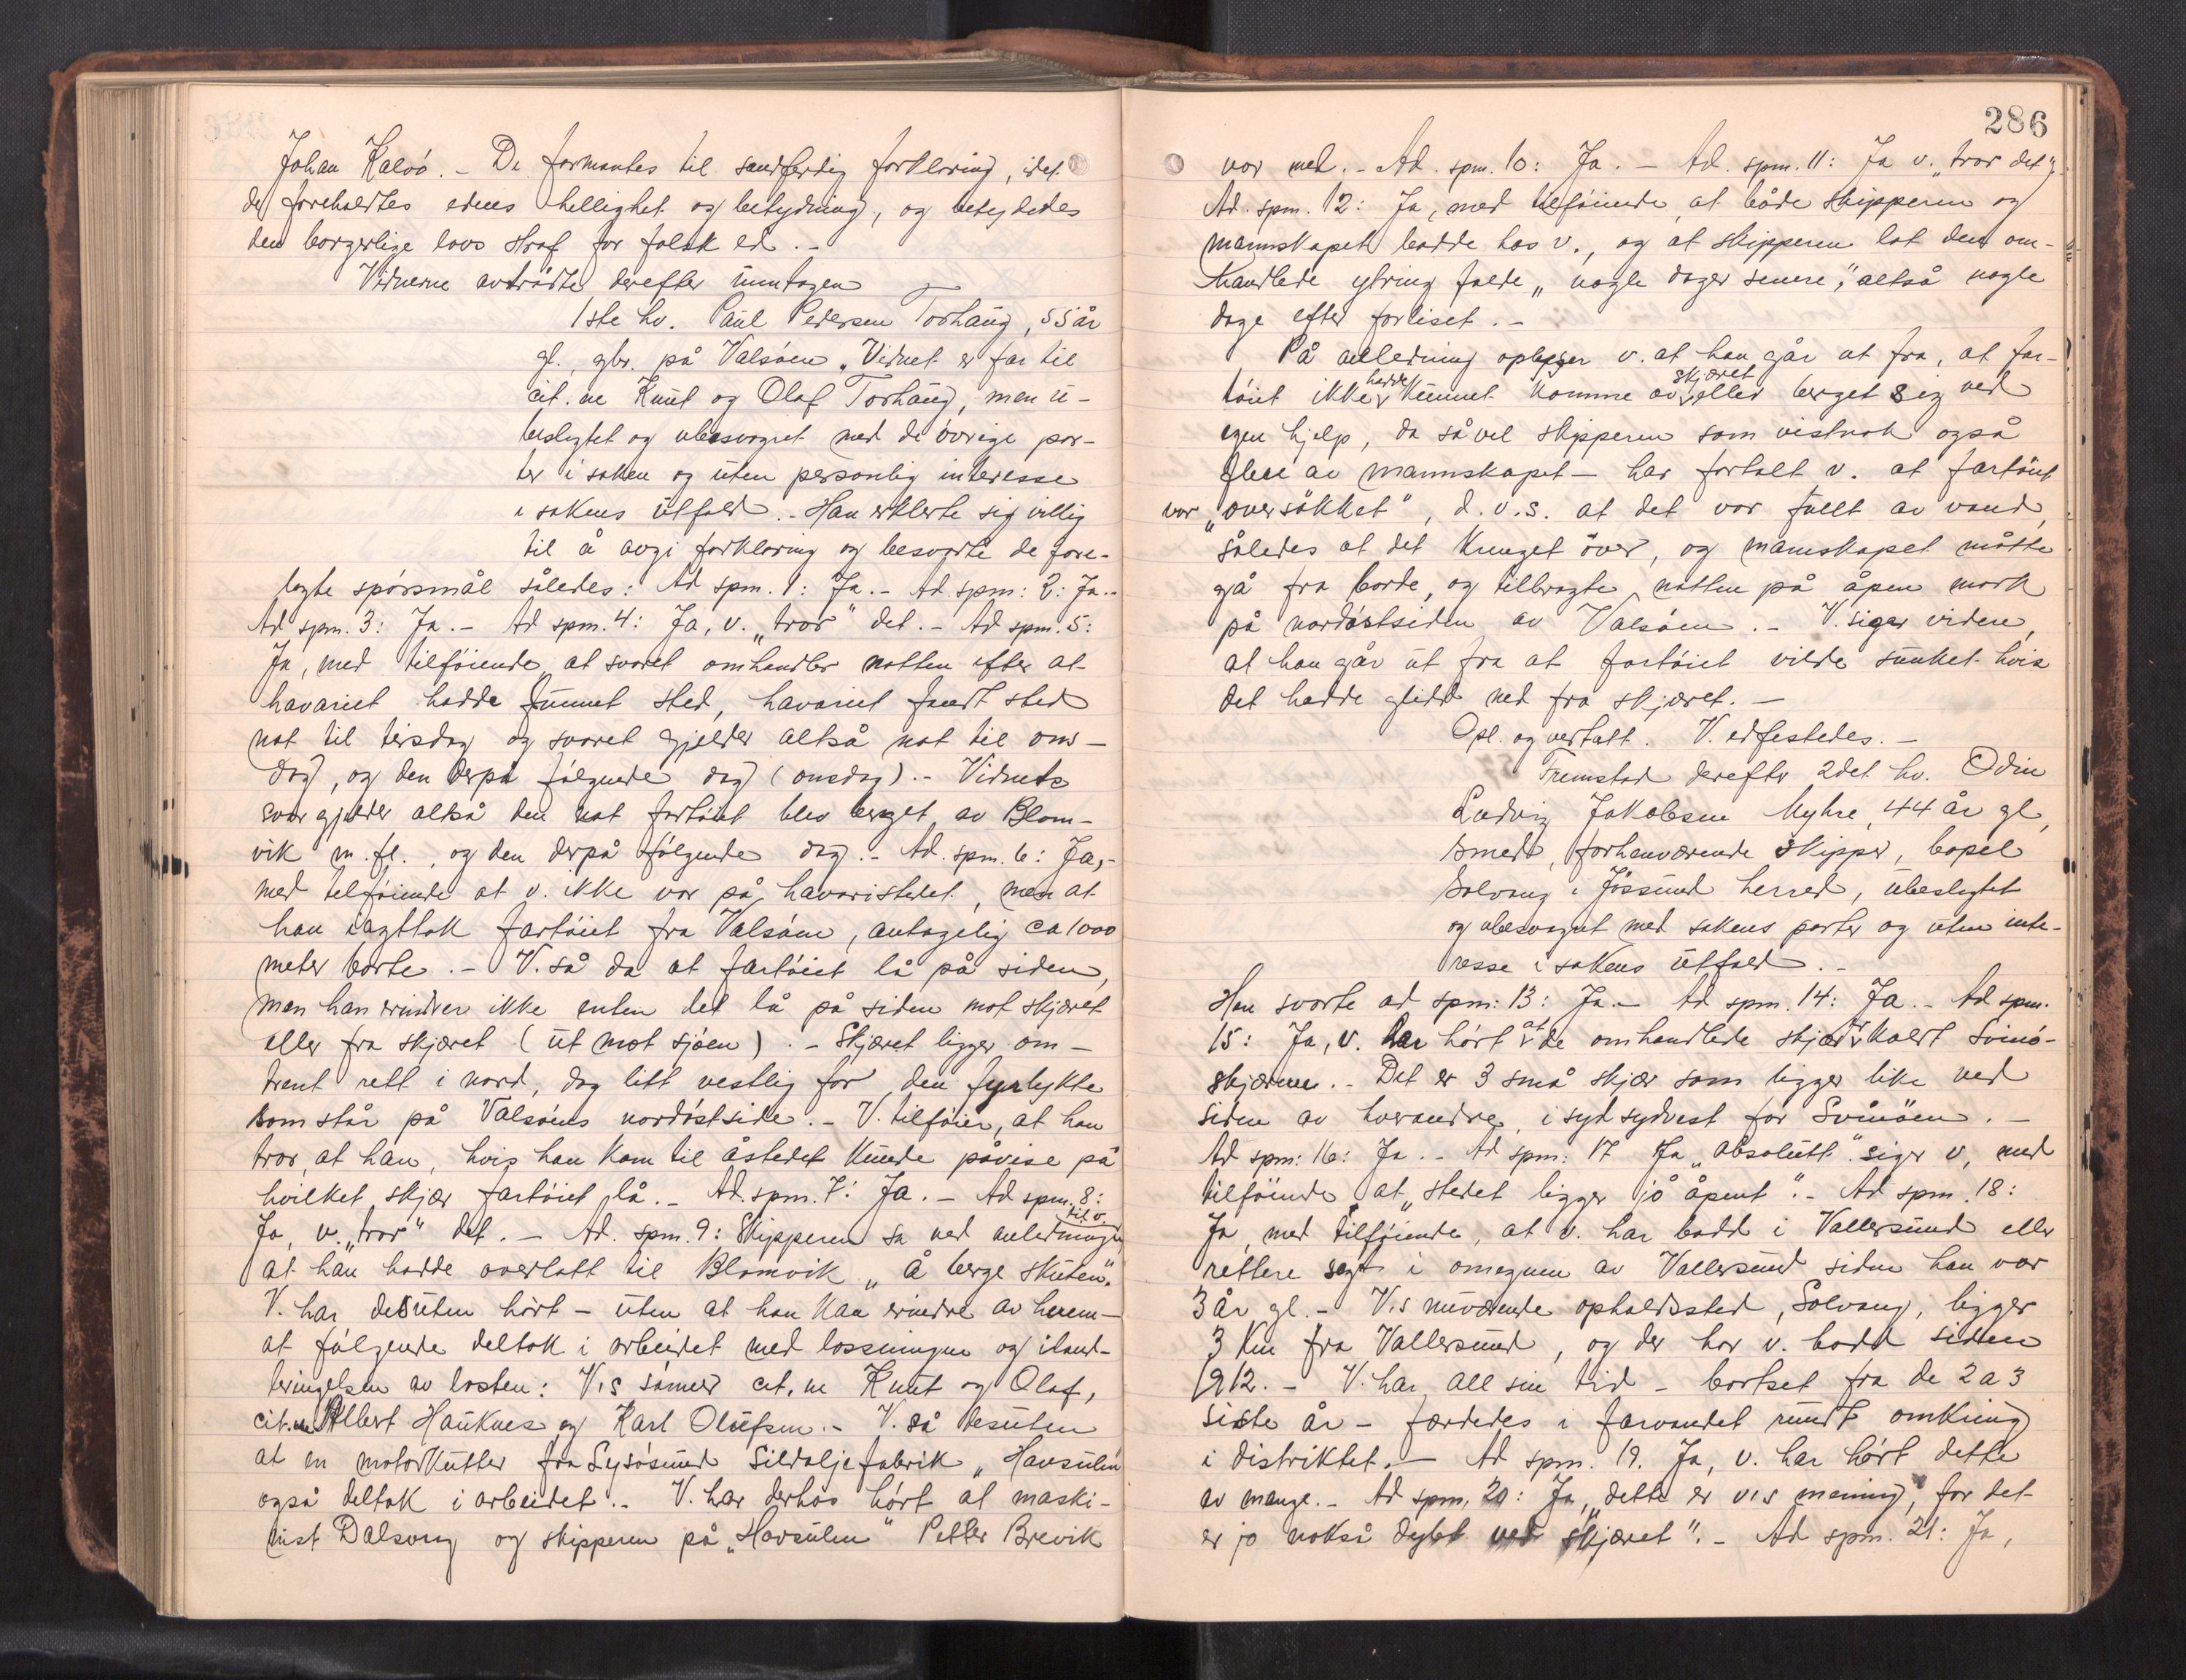 Johan Kalvø. - De formantes til sandferdig forklaring, idet
de foreholdtes edens hellighet og betydning, og betydedes
den borgerlige lovs straf for falsk ed. -
Vidnerne avtrådte derefter unntagen
1ste hv. Paul Pedersen Torhaug, 55 år
gl., gbr. på Valsøen. Vidnet er far til
cit.ne Knut og Olaf Torhaug, men u-
beslegtet og ubesvogret med de øvrige par-
ter i saken og uten personlig interesse
i sakens utfald. - Han erklerte sig villig
til å avgi forklaring og besvarte de fore-
lagte spørsmål således: Ad spm. 1: Ja. - Ad. spm: 2: Ja. -
Ad spm. 3: Ja. - Ad spm. 4: Ja, v. „tror" det. - Ad spm. 5:
Ja, med tilføiende, at svaret omhandler natten efter at
havariet hadde funnet sted, havariet fandt sted
nat til tirsdag og svaret gjelder altså nat til ons-
dag, og den derpå følgende dag (onsdag). - Vidnets
svar gjelder altså den nat fartøiet blev berget av Blom-
vik m. fl., og den derpå følgende dag. - Ad. spm. 6: Ja, -
med tilføiende at v. ikke var på havaristedet, men at
han iagttok fartøiet fra Valsøen, antagelig ca 1000
meter borte. - V. så da at fartøiet lå på siden,
men han erindrer ikke enten det lå på siden mot skjæret
eller fra skjæret (ut mot sjøen). - Skjæret ligger om-
trent rett i nord, dog litt vestlig for den fyrlykte
som står på Valsøens nordøstside. - V. tilføier, at han
tror, at han, hvis han kom til åstedet kunde påvise på
hvilket skjær fartøiet lå. - Ad. spm. 7: Ja. - Ad spm. 8:
Ja, v. „tror" det. - Ad. spm. 9: Skipperen sa ved anledningen til v.
at han hadde overlatt til Blomvik „å berge skuten".
V. har desuten hørt - uten at han kan erindre av hvem -
at følgende deltok i arbeidet med lossningen og iland-
bringelsen av lasten: V.s sønner cit.ne Knut og Olaf,
cit.ne Albert Hauknes og Karl Olufsen. - V. så desuten
at en motorkutter fra Lysøsund Sildoljefabrik „Havsulen"
også deltok i arbeidet. - V. har derhos hørt at maski-
nist Dalsvag og skipperen på „Havsulen" Petter Brevik
286
var med. - Ad. spm. 10: Ja. - Ad. spm. 11: Ja v. „tror det".
Ad. spm. 12: Ja, med tilføiende, at både skipperen og
mannskapet bodde hos v., og at skipperen lot den om-
handlede ytring falde „nogle dager senere", altså nogle
dage efter forliset. -
På anledning oplyser v. at han går ut fra, at far-
tøiet ikke hadde kunnet komme av skjæret eller berget sig ved
egen hjelp, da såvel skipperen som vistnok også
flere av mannskapet - har fortalt v. at fartøiet
var „oversøkket", d.v.s. at det var fullt av vand,
således at det krenget over, og mannskapet måtte
gå fra borde, og tilbragte natten på åpen mark
på nordøstsiden av Valsøen. - V. siger videre,
at han går ut fra at fartøiet vilde sunket hvis
det hadde glidd ned fra skjæret. -
Opl. og vertatt. V. edfestedes. -
Fremstod derefter 2det hv. Odin
Ludvig Jakobsen Myhre, 44 år gl,
smed, forhenværende skipper, bopel
Solvang i Jøssund herred, ubeslegtet
og ubesvogret med sakens parter og uten inte-
resse i sakens utfald. -
Han svarte ad spm: 13: Ja. - Ad spm. 14: Ja. - Ad spm.
15: Ja, v. har hørt at de omhandlede skjær er kalt Svinø-
skjærene. - Det er 3 små skjær som ligger like ved
siden av hverandre, i syd sydvest for Svinøen. -
Ad spm: 16: Ja. - Ad spm: 17 Ja „absolutt" siger v, med
tilføiende at „stedet ligger jo åpent". - Ad spm. 18:
Ja, med tilføiende, at v. har bodd i Vallersund eller
rettere sagt i omegnen av Vallersund siden han var
3 år gl. - V.s nuværende opholdssted, Solvang, ligger
3 km fra Vallersund, og der har v. bodd siden
1912. - V. har all sin tid - bortset fra de 2 a 3
siste år - færdedes i farvandet rundt omkring
i distriktet. - Ad spm. 19. Ja, v. har hørt dette
av mange. - Ad spm. 20: Ja, „dette er v.s mening, for det
er jo nokså dypt ved skjæret". - Ad spm. 21: Ja,